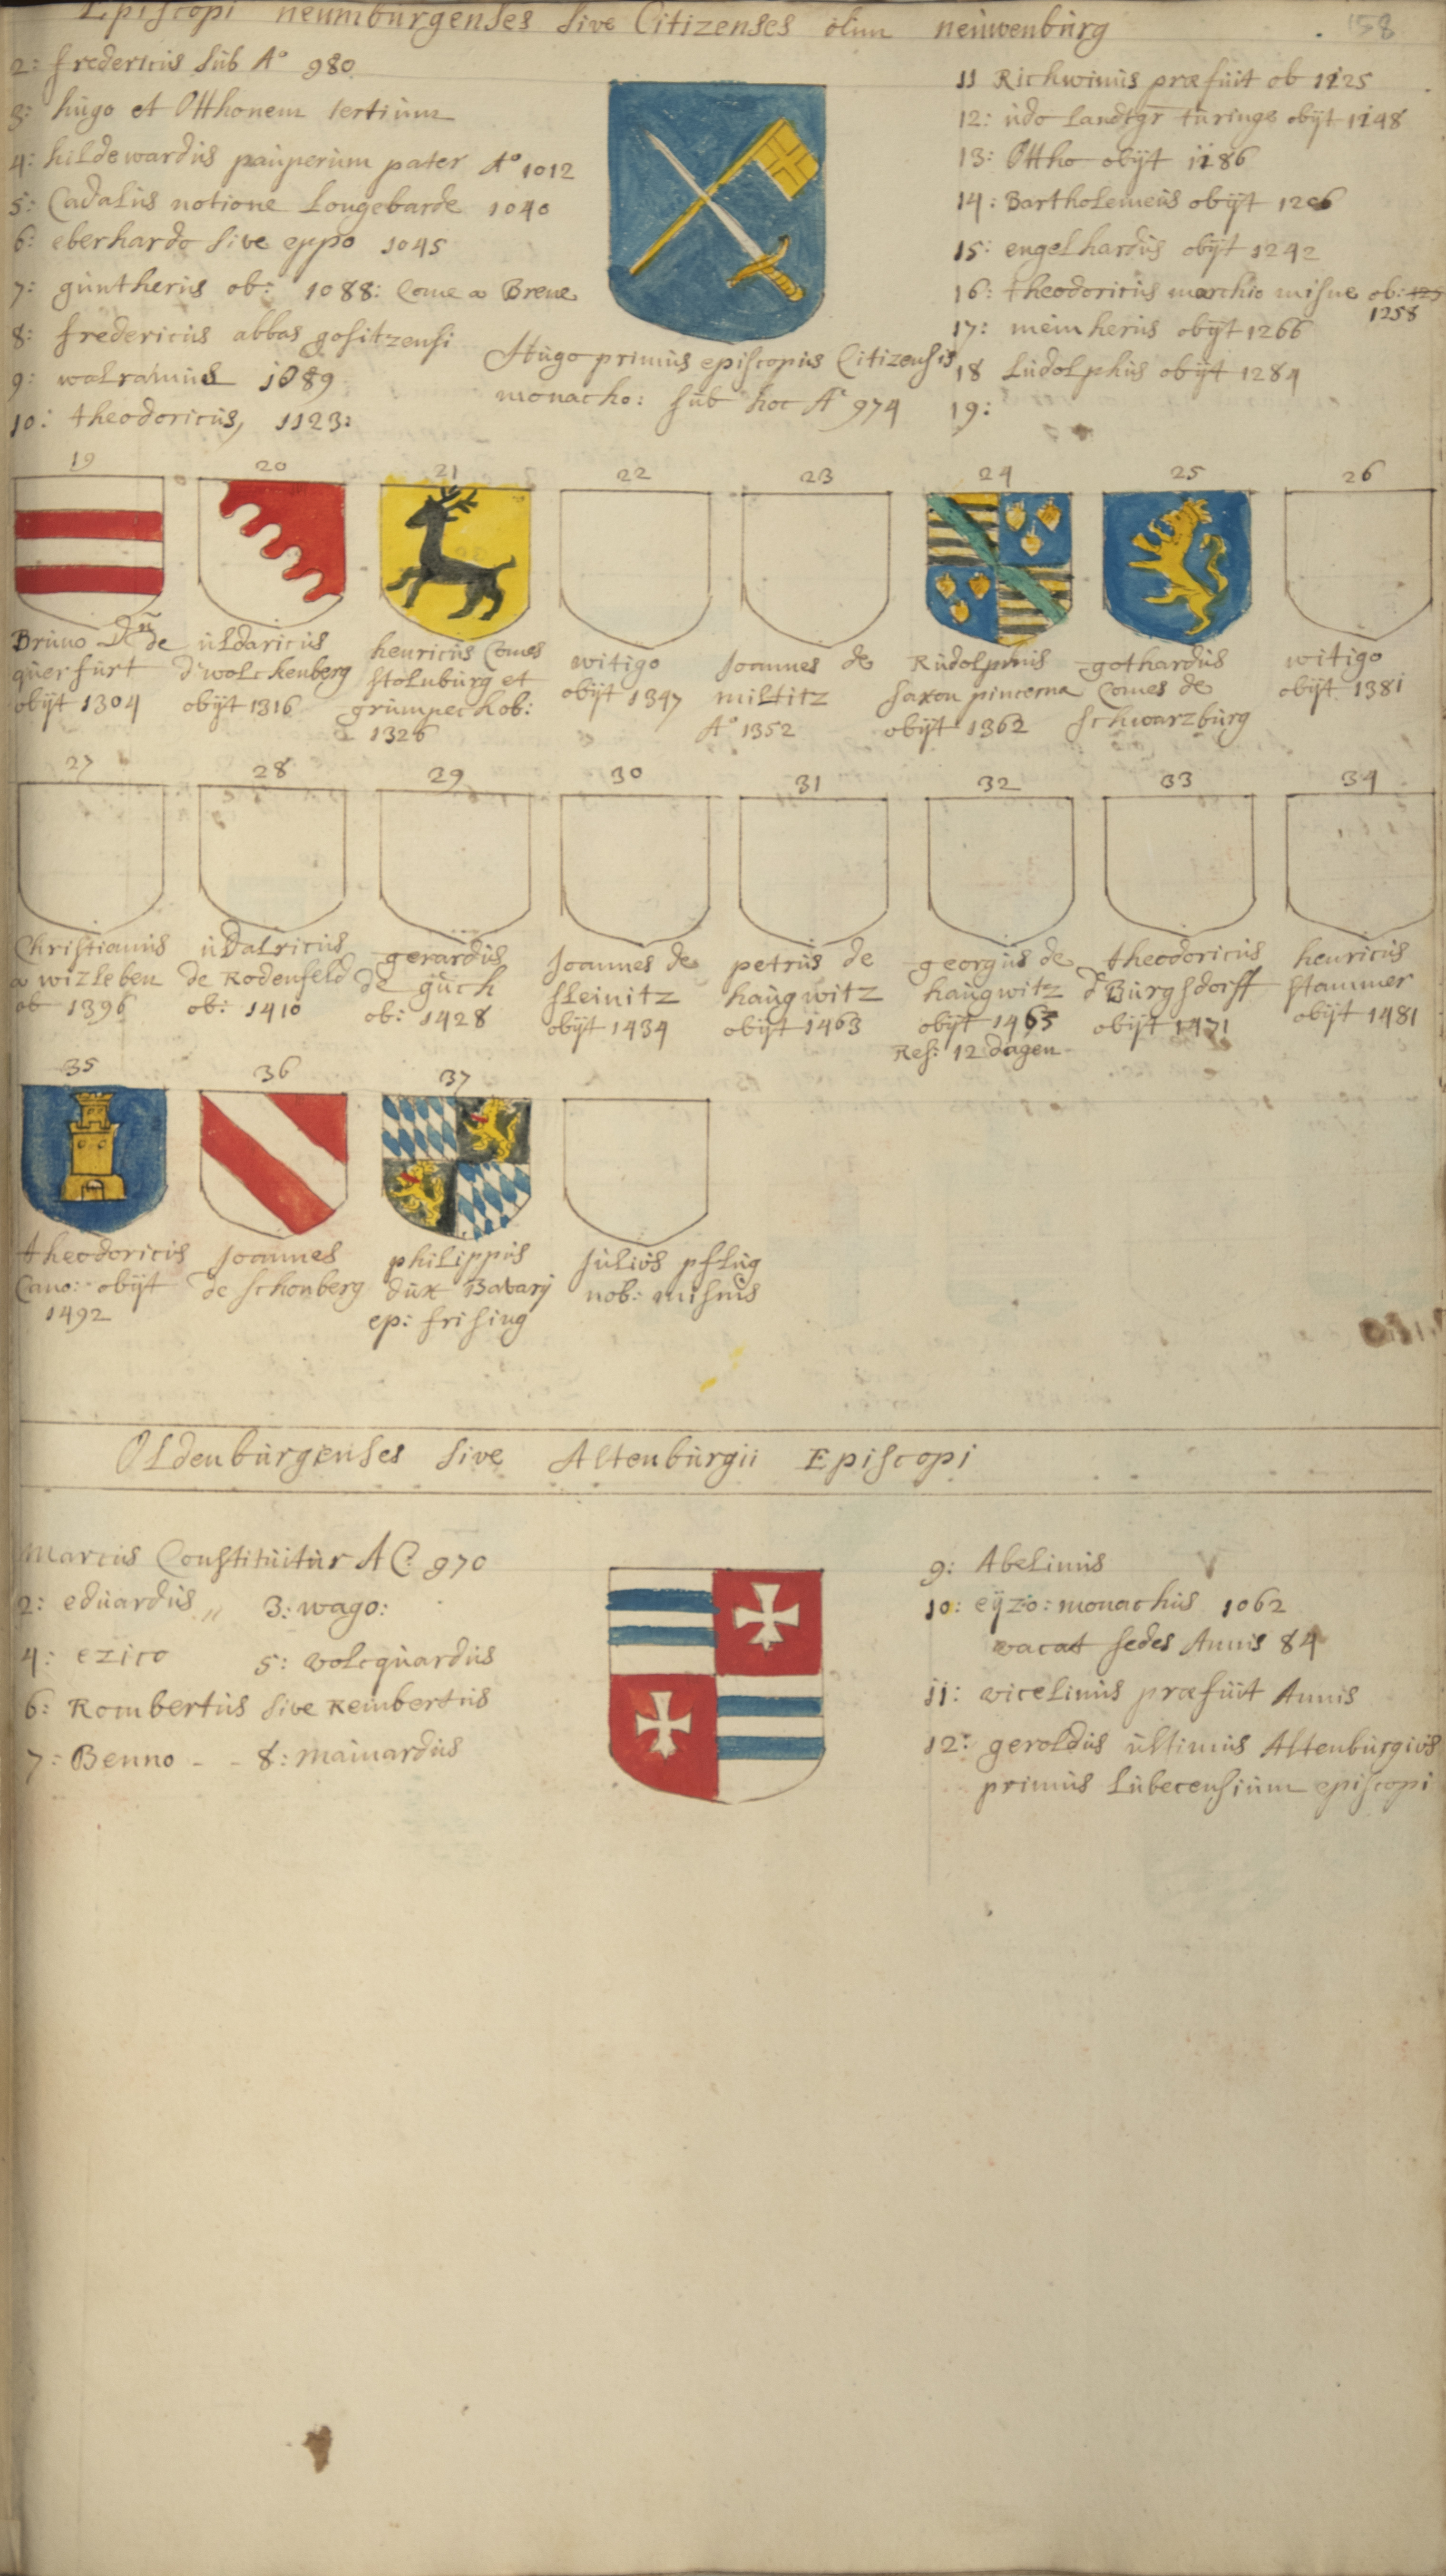 Episcopi neumburgenses sive Citizenses olim neuwenburg
158
2: fredericus sub A° 980
3: hugo et Otthonem tertium
4: hildewardus pauperum pater A° 1012
5: Cadalus notione Longebarde 1040
6: eberhardo sive eppo 1045
7: guntherus ob: 1088: Come a Brene
8: fredericus abbas gositzensi
9: walramus 1089
10: theodoricus, 1123:
Hugo primus episcopus Citizensis
monacho: sub hoc A° 974
11 Richwinus præfuit ob 1125
12: udo landtgr turinge obijt 1148
13: Ottho obijt 1186
14: Bartholemeus obijt 1206
15: engelhardus obijt 1242
16: theodoricus marchio misne ob: 125
1258
17: meinherus obijt 1266
18 Ludolphus obijt 1284
19:
19
Bruno Dn de
querfurt
obijt 1304
20
uldaricus
d'wolckenberg
obijt 1316
21
henricus Comes
stolnburg et
grumpech ob:
1326
22
witigo
obijt 1347
23
Joannes de
miltitz
A° 1352
24
Rudolphus
saxon pincerna
obijt 1362
25
gothardus
Comes de
schwarzburg
26
witigo
obijt 1381
27
Christianus
a wizleben
ob 1396
28
udalricus
de Rodenfeld
ob: 1410
29
gerardus
de guch
ob: 1428
30
Joannes de
sleinitz
obijt 1434
31
petrus de
haugwitz
obijt 1463
32
georgus de
haugwitz
obijt 1463
Res: 12 dagen
33
theodoricus
d Burgsdorff
obijt 1471
34
henricus
stammer
obijt 1481
35
theodoricus
Cano: obijt
1492
36
Joannes
de schonberg
37
philippus
dux Bavarij
ep: frising
Julius pflug
nob: misnis
Oldenburgenses sive Altenburgii Episcopi
Marcus Constituitur A C: 970
2: eduardus,, 3: wago:
4: ezico 5: wolcquardus
6: Rombertus sive Reinbertus
7: Benno - - 8: mainardus
9: Abelinus
10: eijzo: monachus 1062
vacat sedes Annis 84
11: vicelinus præfuit Annis
12: geroldus ultimus Altenburgius
primus Lubecensium episcopi